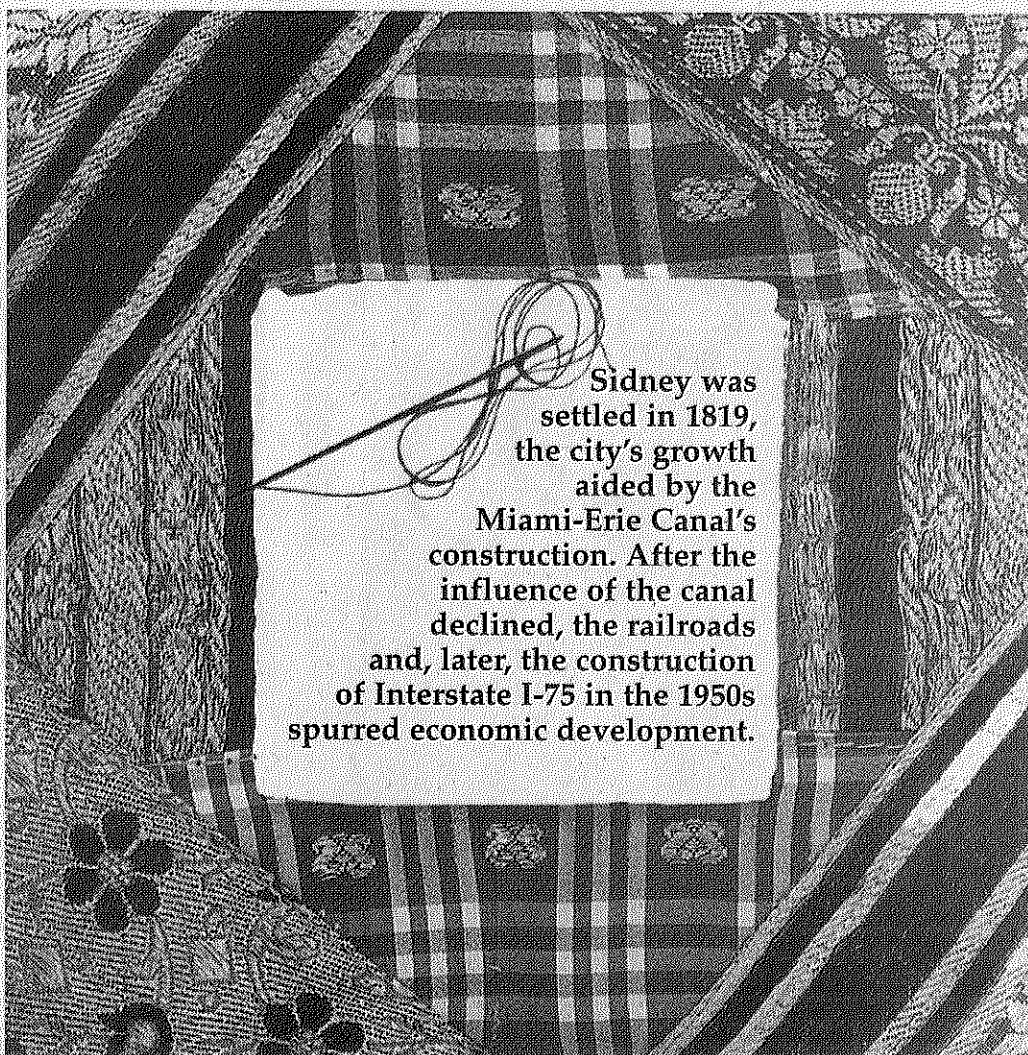 Sidney was
settled in 1819,
the city's growth
aided by the
Miami-Erie Canal's
construction. After the
influence of the canal
declined, the railroads
and, later, the construction
of Interstate I-75 in the 1950s
spurred economic development.